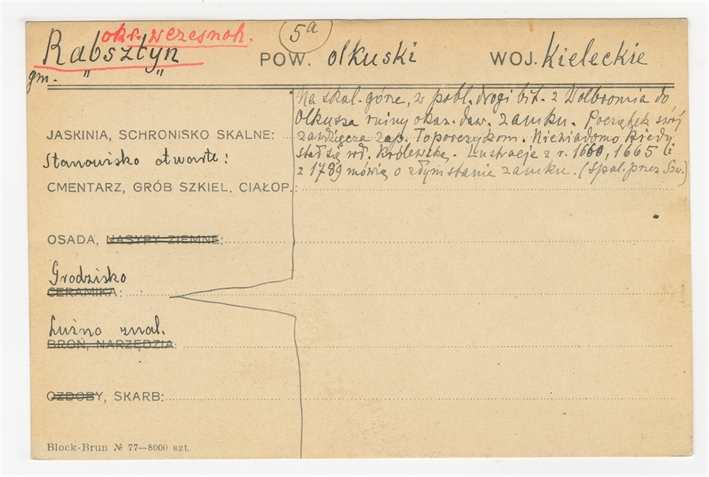 okr. wczesnoh.
5a
Rabsztyn POW. olkuski WOJ. Kieleckie
gm. " "
Na skal. górze, w pobl. drogi bit. z Wolbromia do
Olkusza ruiny okaz. daw. zamku. Początek swój
JASKINIA, SCHRONISKO SKALNE: zawdzięcza zap. Toporczykom. Niewiadomo kiedy
Stanowisko otwarte: stał się wł. Królewską. Lustracje z r. 1660, 1665 i
z 1789 mówią o złym stanie zamku. (Spal. przez Szw.)
CMENTARZ, GRÓB SZKIEL. CIAŁOP.:
OSADA, NASYPY ZIEMNE:
Grodzisko
CERAMIKA:
Luźno znal.
BROŃ, NARZĘDZIA:
OZDOBY, SKARB:
Block-Brun № 77—8000 szt.